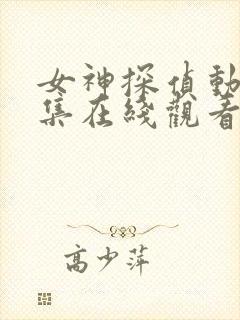 女神探偵動
集在綫觀看
高少萍